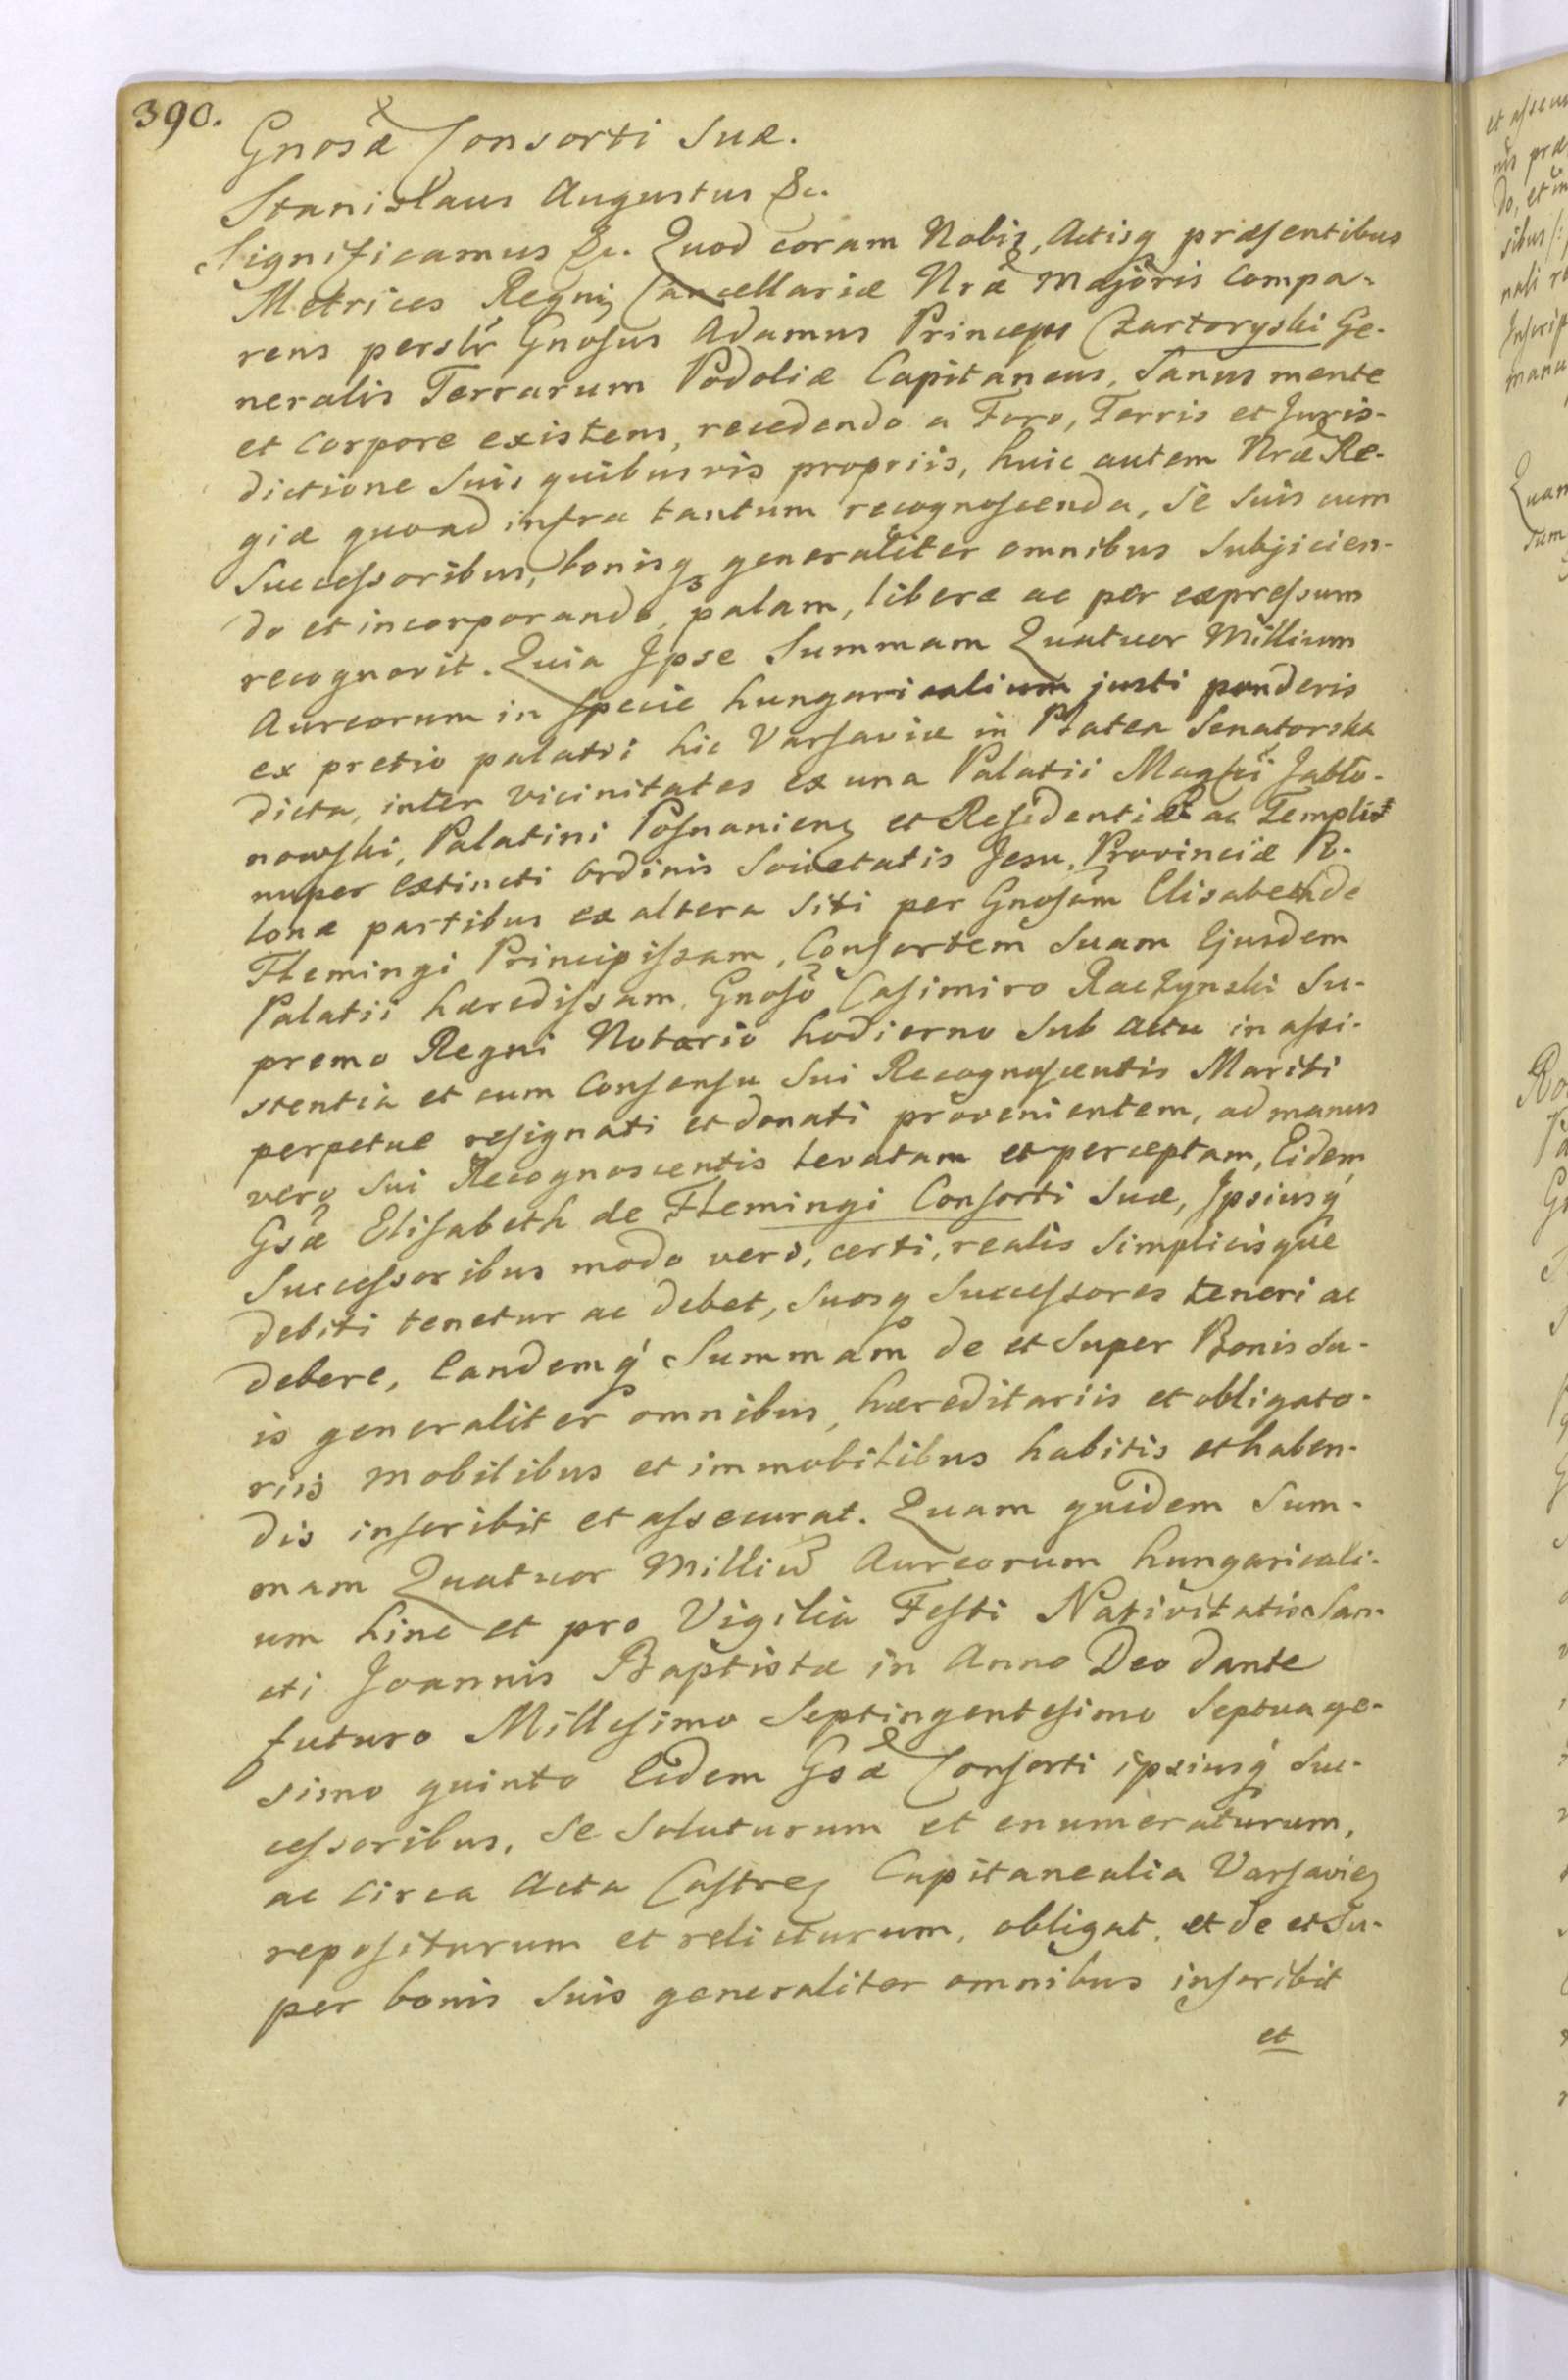 390.
Gnosæ Consorti Suæ.
Stanislaus Augustus &c.
Significamus &c. Quod coram Nobis, Actisq præsentibus
Metrices Regni Cancellariæ Nræ Majoris Compa-
rens perslr Gnosus Adamus Princeps Czartoryski Ge-
neralis Terrarum Podoliæ Capitaneus, Sanus mente
et corpore existens, recedendo a Foro, Terris et Juris-
dictione Suis quibusvis propriis, huic autem Nræ Re-
giæ quoad infra tantum recognoscenda, Se Suis cum
Successoribus, bonisq generaliter omnibus Subjicien-
do et incorporando, palam, libere ac per expressum
recognovit. Quia Ipse Summam Quatuor Millium
Aureorum in Specie hungaricalium justi ponderis
ex pretio palatii hic Varsaviæ in Platea Senatorska
dicta, inter vicinitates ex una Palatii Magci Jabło-
nowski, Palatini Posnanien et Residentiæ ac Templi
nuper extincti Ordinis Societatis Jesu, Provinciæ Po-
lonæ partibus ex altera Siti per Gnosam Elisabeth de
Flemingi Principissam, Consortem Suam Ejusdem
Palatii hæredissam, Gnoso Casimiro Raczynski Su-
premo Regni Notario hodierno Sub actu in assi-
stentia et cum Consensu Sui Recognoscentis Mariti
perpetue resignati et donati provenientem, ad manus
vero Sui Recognoscentis levatam et perceptam, Eidem
Gsæ Elisabeth de Flemingi Consorti Suæ, Ipsiusq
Successoribus modo veri, certi, realis Simplicisque
debiti tenetur ac debet, Suosq Successores teneri ac
debere, Eandemq Summam de et Super Bonis Su-
is generaliter omnibus, hæreditariis et obligato-
riis mobilibus et immobilibus habitis et haben-
dis inscribit et assecurat. Quam quidem Sum-
mam Quatuor Milliu Aureorum hungaricali-
um hinc et pro Vigilia Festi Nativitatis San-
cti Joannis Baptistæ in Anno Deo dante
futuro Millesimo Septingentesimo Septuage-
simo quinto Eidem Gsæ Consorti ipsiusq Suc-
cessoribus, Se Soluturum et enumeraturum,
ac circa Acta Castren Capitanealia Varsavien
repositurum et relicturum, obligat, et de et Su-
per bonis Suis generaliter omnibus inscribit
et